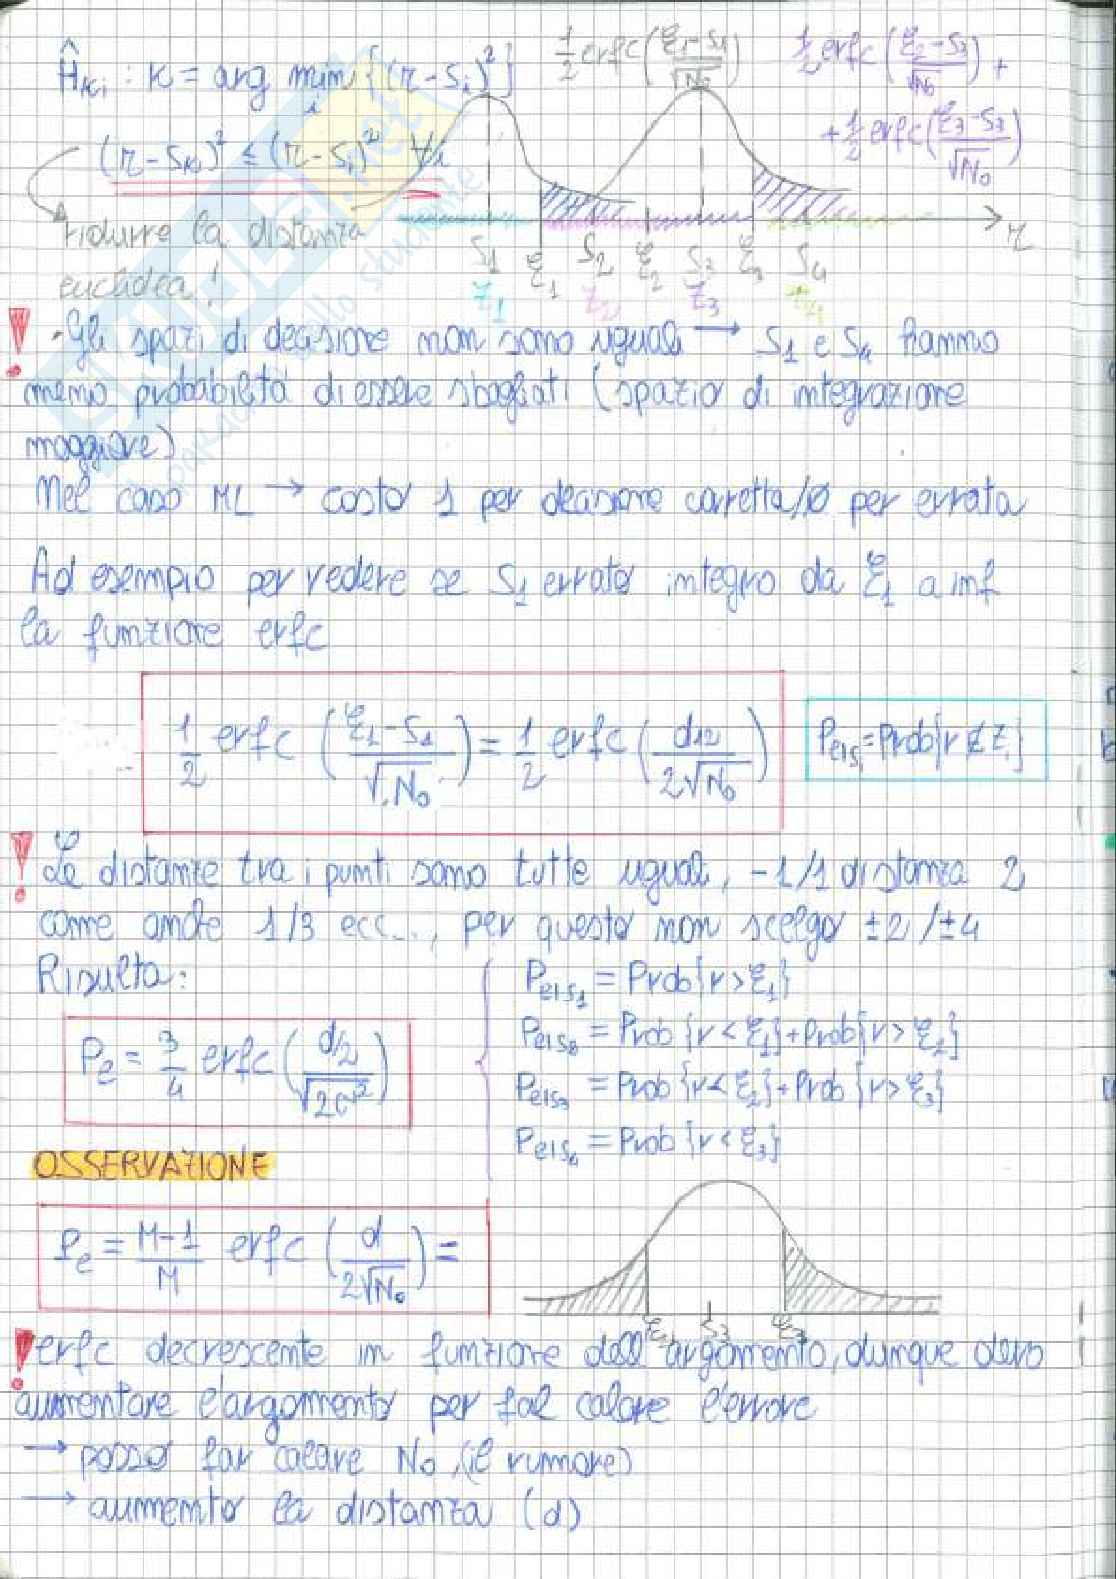 Ĥ_Ki : K = arg min_i {(r - S_i)²}
(r - S_K)² ≤ (r - S_i)² ∀i
ridurre la distanza
euclidea!
1/2 erfc((ξ1 - S1)/√N0)
1/2 erfc((ξ2 - S3)/√N0) +
+ 1/2 erfc((ξ3 - S3)/√N0)
S1 ξ1 S2 ξ2 S3 ξ3 S4 r
Z1 Z2 Z3 Z4
! · Gli spazi di decisione non sono uguali → S1 e S4 hanno
meno probabilità di essere sbagliati (spazio di integrazione
maggiore)
Nel caso ML → costo 1 per decisione corretta/ø per errata
Ad esempio per vedere se S1 errato integro da ξ1 a inf
la funzione erfc
1/2 erfc((ξ1 - S1)/√N0) = 1/2 erfc(d12/(2√N0))
Pe|S_i = Prob{r ∉ Z_i}
! Le distanze tra i punti sono tutte uguali, -1/1 distanza 2
come anche 1/3 ecc..., per questo non scelgo ±2/±4
Risulta:
Pe = 3/4 erfc((d/2)/√(2σ²))
Pe|S1 = Prob{r > ξ1}
Pe|S2 = Prob{r < ξ1} + Prob{r > ξ2}
Pe|S3 = Prob{r < ξ2} + Prob{r > ξ3}
Pe|S4 = Prob{r < ξ3}
OSSERVAZIONE
Pe = (M-1)/M erfc(d/(2√N0)) =
S3
! erfc decrescente in funzione dell'argomento, dunque devo
aumentare l'argomento per far calare l'errore
→ posso far calare N0 (il rumore)
→ aumento la distanza (d)